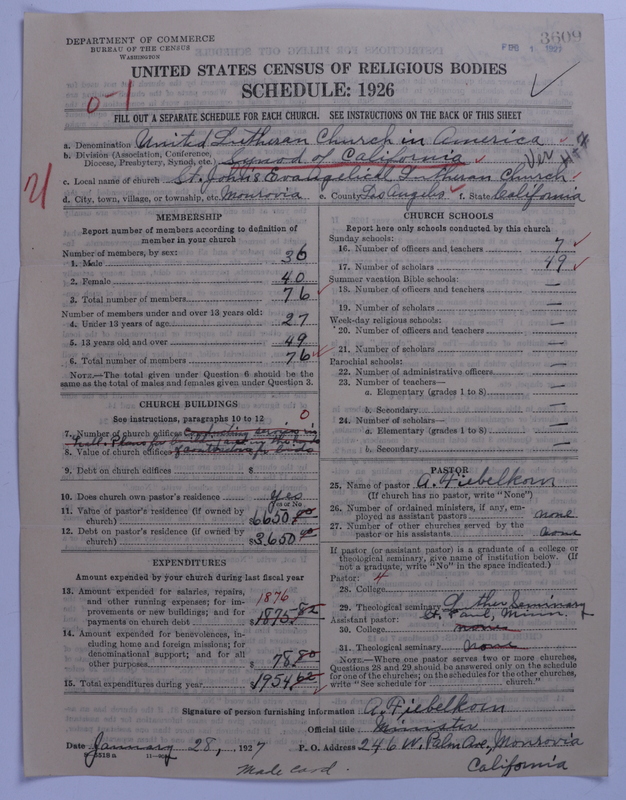 DEPARTMENT OF COMMERCE
BUREAU OF THE CENSUS
WASHINGTON
3609
FEB 1 1927
UNITED STATES CENSUS OF RELIGIOUS BODIES
SCHEDULE: 1926
0-1
FILL OUT A SEPARATE SCHEDULE FOR EACH CHURCH. SEE INSTRUCTIONS ON THE BACK OF THIS SHEET
a. Denomination United Lutheran Church in America
b. Division (Association, Conference, Diocese, Presbytery, Synod, etc.) Synod of California
c. Local name of church St. John's Evangelical Lutheran Church
d. City, town, village, or township, etc. Monrovia e. County Los Angels f. State California
MEMBERSHIP
Report number of members according to definition of member in your church
Number of members, by sex:
1. Male 36
2. Female 40
3. Total number of members 76
Number of members under and over 13 years old:
4. Under 13 years of age 27
5. 13 years old and over 49
6. Total number of members 76
NOTE.—The total given under Question 6 should be the same as the total of males and females given under Question 3.
CHURCH BUILDINGS
See instructions, paragraphs 10 to 12
7. Number of church edifices 0
8. Value of church edifices
9. Debt on church edifices $
10. Does church own pastor's residence Yes
Yes or No
11. Value of pastor's residence (if owned by church) $6650.00
12. Debt on pastor's residence (if owned by church) $3650.00
EXPENDITURES
Amount expended by your church during last fiscal year
13. Amount expended for salaries, repairs, and other running expenses; for improvements or new buildings; and for payments on church debt $1875.82
1876
14. Amount expended for benevolences, including home and foreign missions; for denominational support; and for all other purposes 78.80
15. Total expenditures during year $1954.62
CHURCH SCHOOLS
Report here only schools conducted by this church
Sunday schools:
16. Number of officers and teachers 7
17. Number of scholars 49
Summer vacation Bible schools:
18. Number of officers and teachers —
19. Number of scholars —
Week-day religious schools:
20. Number of officers and teachers —
21. Number of scholars —
Parochial schools:
22. Number of administrative officers —
23. Number of teachers—
a. Elementary (grades 1 to 8) —
b. Secondary —
24. Number of scholars—
a. Elementary (grades 1 to 8) —
b. Secondary —
PASTOR
25. Name of pastor A. Fiebelkorn
(If church has no pastor, write "None")
26. Number of ordained ministers, if any, employed as assistant pastors none
27. Number of other churches served by the pastor or his assistants none
If pastor (or assistant pastor) is a graduate of a college or theological seminary, give name of institution below. (If not a graduate, write "No" in the space indicated.)
Pastor: 4
28. College
29. Theological seminary Luther Seminary
St. Paul, Minn.
Assistant pastor:
30. College none
31. Theological seminary none
NOTE.—Where one pastor serves two or more churches, Questions 28 and 29 should be answered only on the schedule for one of the churches; on the schedules for the other churches, write "See schedule for church."
Signature of person furnishing information A. Fiebelkorn
Official title Minister
Date January 28, 1927 P. O. Address 246 W. Palm Ave., Monrovia
California
Made card.